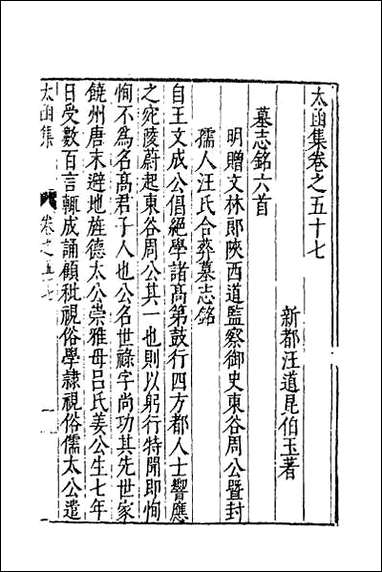 太函集卷之五十七
新都汪道昆伯玉著
墓志銘六首
明贈文林郎陝西道監察御史東谷周公暨封
孺人汪氏合葬墓志銘
自王文成公倡絕學諸高第鼓行四方都人士響應
之宛陵蔚起東谷周公其一也則以躬行特聞即恂
恂不為名高君子人也公名世祿字尚功其先世家
饒州唐末避地旌德太公崇雅母呂氏姜公生七年
日受數百言輒成誦顧秕視俗學隷視俗儒太公遣
太函集
卷之五十七
一